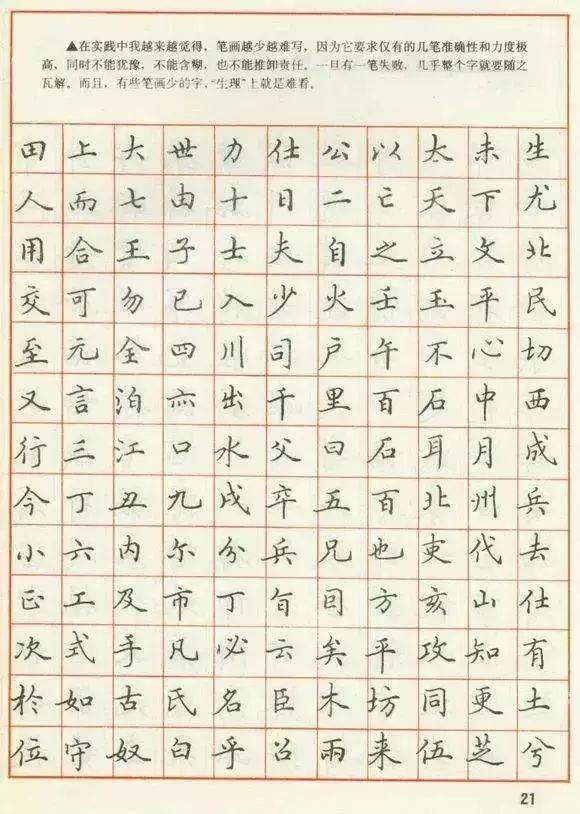 ▲在实践中我越来越觉得，笔画越少越难写，因为它要求仅有的几笔准确性和力度极
高，同时不能犹豫，不能含糊，也不能推卸责任。一旦有一笔失败，几乎整个字就要随之
瓦解。而且，有些笔画少的字，“生理”上就是难看。
田上大世力仕公以太未生
人而七由十日二亡天下尤
用合王子士夫自之立文北
交可勿已入少火壬玉平民
至元全四川司户午不心切
又言泊亦出千里百石中西
行三江口水父曰石耳月成
今丁丑九戌卒五百北州兵
小六内尔分兵兄也吏代去
正工及市丁旬回方亥山仕
次式手凡必云矣平攻知有
於如古氏名臣木坊同更土
位守奴白乎召兩来伍芝兮
21